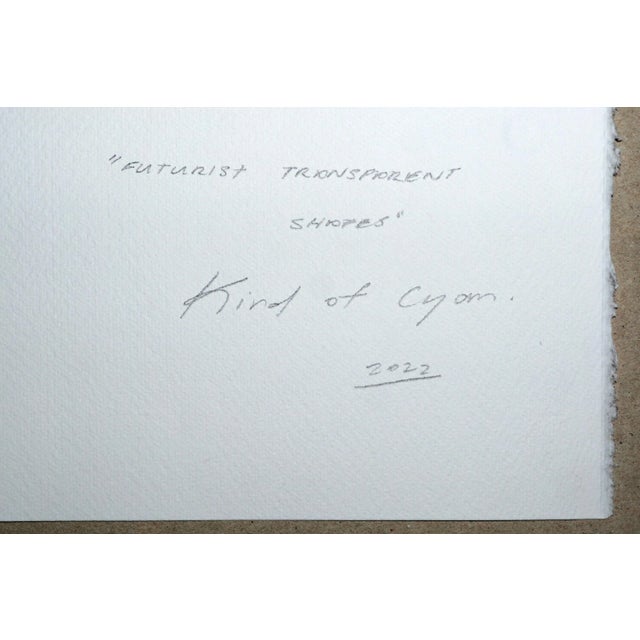 "FUTURIST TRANSPARENT
SHAPES"
Kind of Cyan.
2022